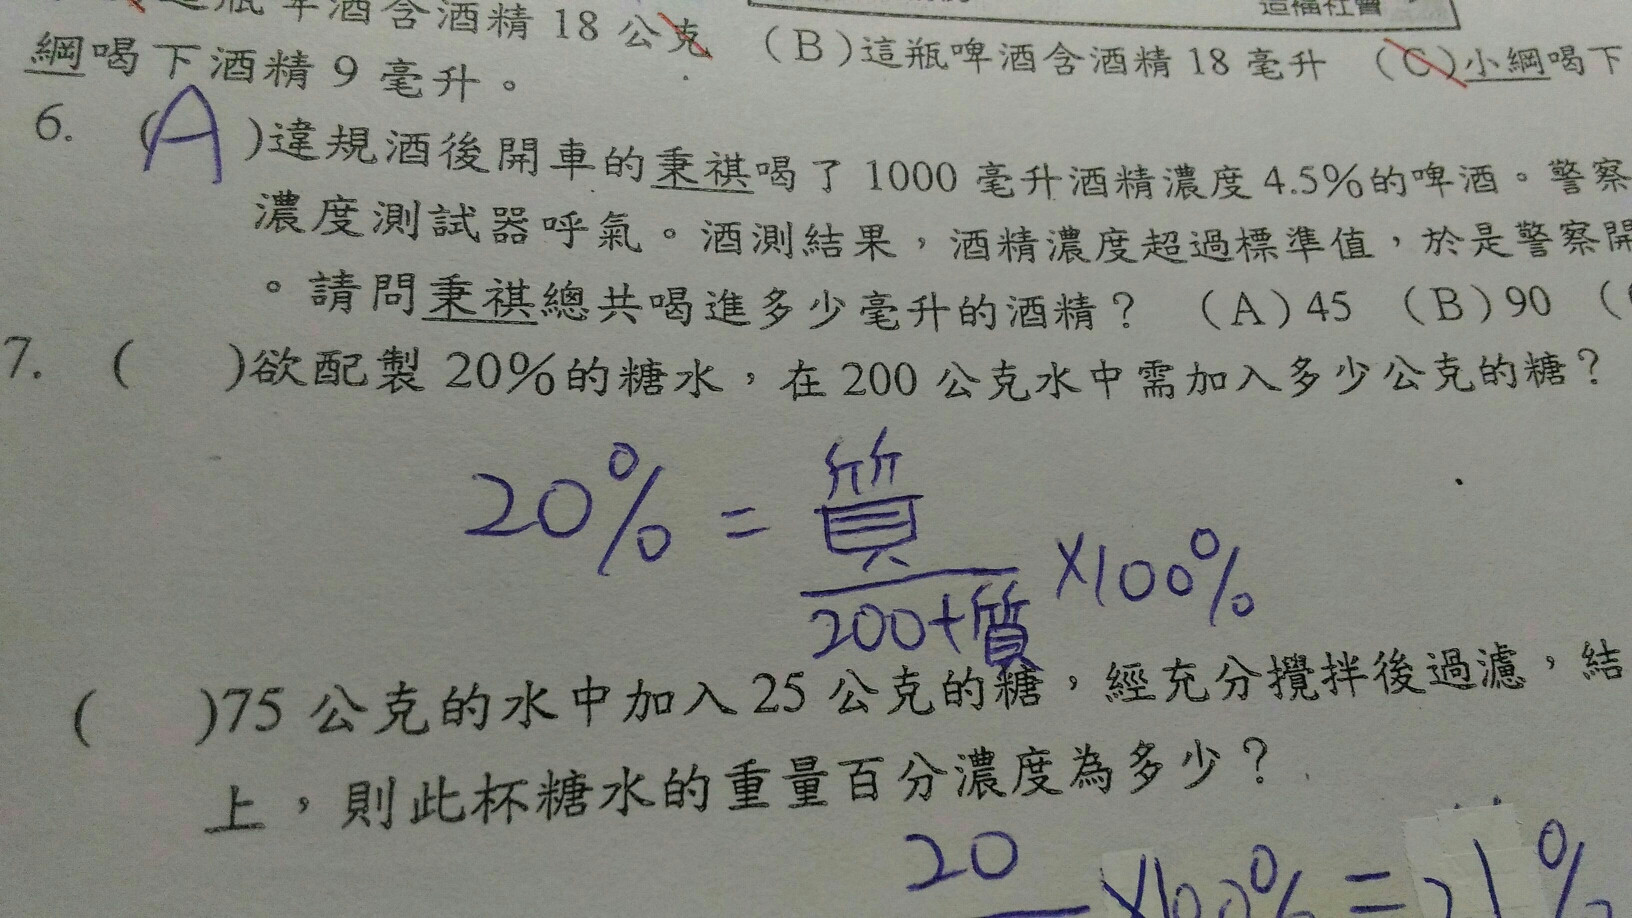 瓶啤酒含酒精 18 公克 (B)這瓶啤酒含酒精 18 毫升 (C)小綱喝下
造福社會
綱喝下酒精 9 毫升。
6. (A)違規酒後開車的秉祺喝了 1000 毫升酒精濃度 4.5%的啤酒。警察
濃度測試器呼氣。酒測結果，酒精濃度超過標準值，於是警察開
。請問秉祺總共喝進多少毫升的酒精？ (A)45 (B)90 (
7. ( )欲配製 20%的糖水，在 200 公克水中需加入多少公克的糖？
20% = 質
200+質 ×100%
( )75 公克的水中加入 25 公克的糖，經充分攪拌後過濾，結
上，則此杯糖水的重量百分濃度為多少？
20 ×100% = 21%